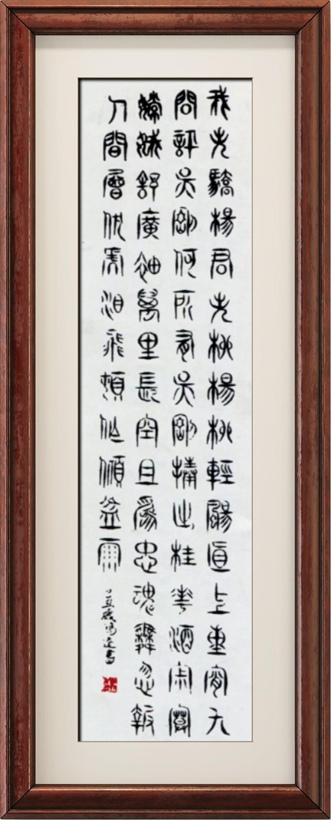 我失驕楊君失柳楊柳輕颺直上重霄九
問訊吳剛何所有吳剛捧出桂花酒寂寞
嫦娥舒廣袖萬里長空且爲忠魂舞忽報
人間曾伏虎淚飛頓作傾盆雨
書